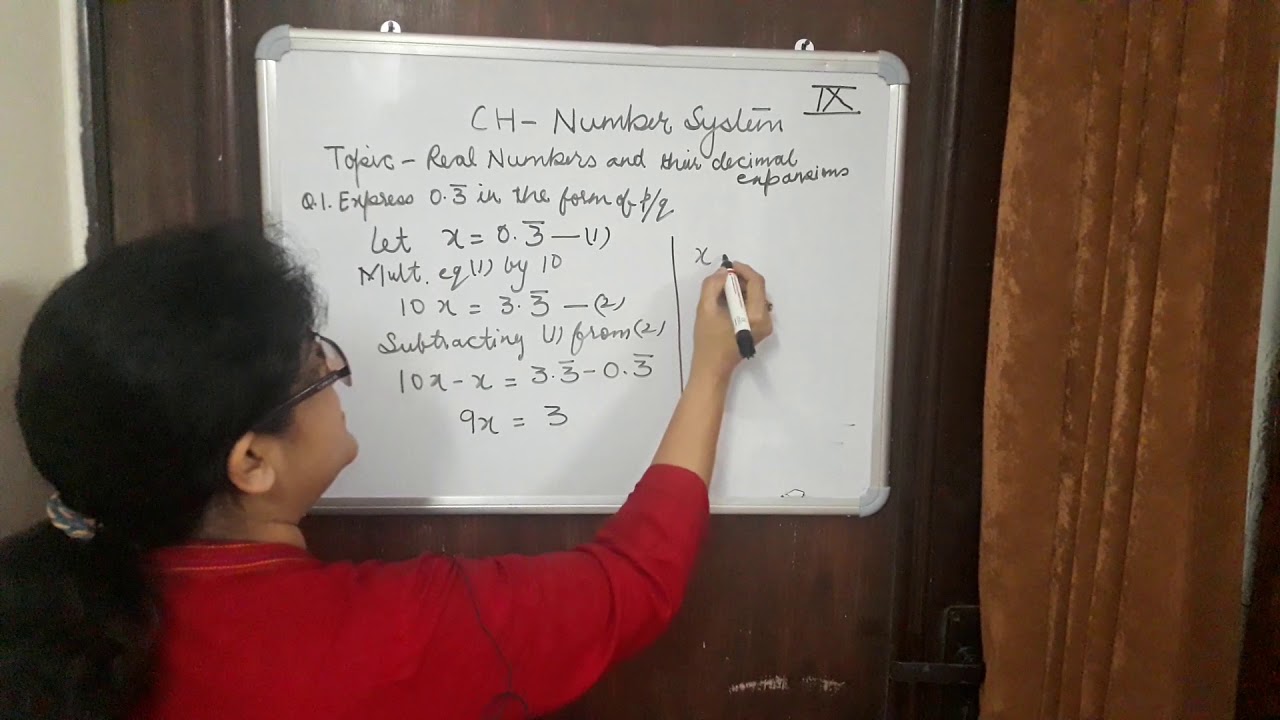 IX
CH- Number System
Topic - Real Numbers and their decimal
expansions
Q.1. Express 0.3̅ in the form of p/q
Let x = 0.3̅ —(1)
Mult. eq(1) by 10
10x = 3.3̅ —(2)
Subtracting (1) from (2)
10x - x = 3.3̅ - 0.3̅
9x = 3
x